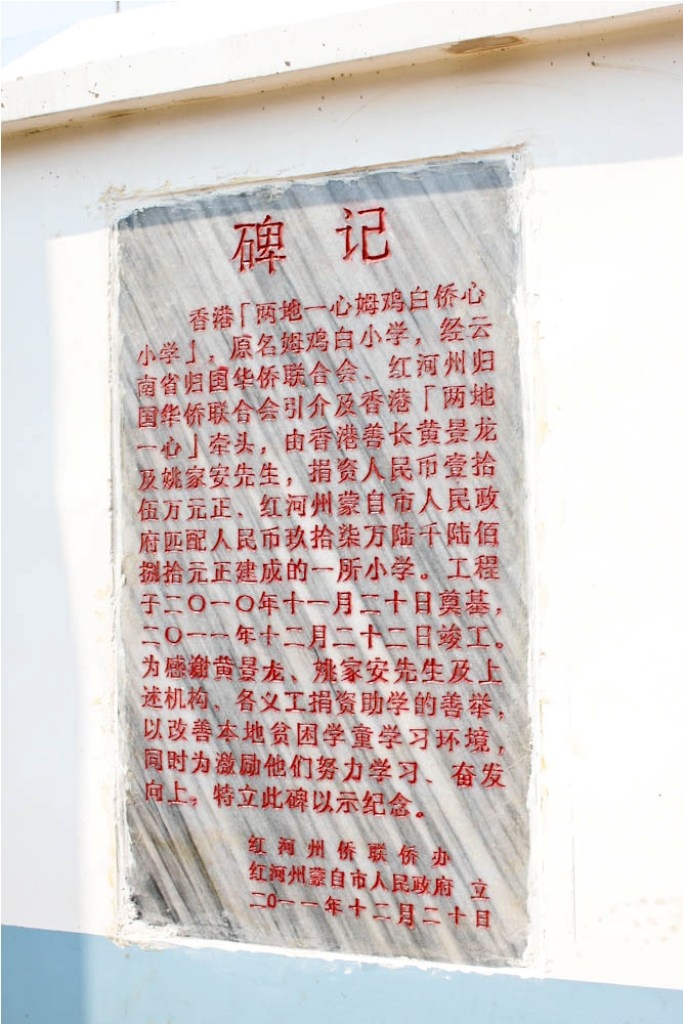 碑 记
香港「两地一心姆鸡白侨心
小学」，原名姆鸡白小学，经云
南省归国华侨联合会、红河州归
国华侨联合会引介及香港「两地
一心」牵头，由香港善长黄景龙
及姚家安先生，捐资人民币壹拾
伍万元正、红河州蒙自市人民政
府匹配人民币玖拾柒万陆千陆佰
捌拾元正建成的一所小学。工程
于二〇一〇年十一月二十日奠基，
二〇一一年十二月二十二日竣工。
为感谢黄景龙、姚家安先生及上
述机构、各义工捐资助学的善举，
以改善本地贫困学童学习环境，
同时为激励他们努力学习、奋发
向上，特立此碑以示纪念。
红河州侨联侨办
红河州蒙自市人民政府 立
二〇一一年十二月二十日